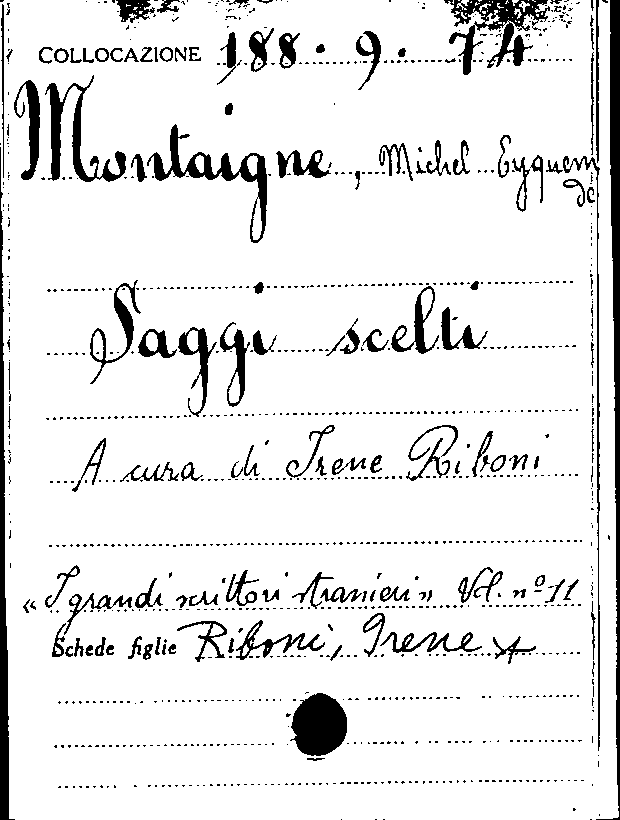 COLLOCAZIONE 188.9.74
Montaigne, Michel Eyquem
de
Saggi scelti
A cura di Irene Riboni
«I grandi scrittori stranieri» Vol. nº 11
Schede figlie Riboni, Irene x